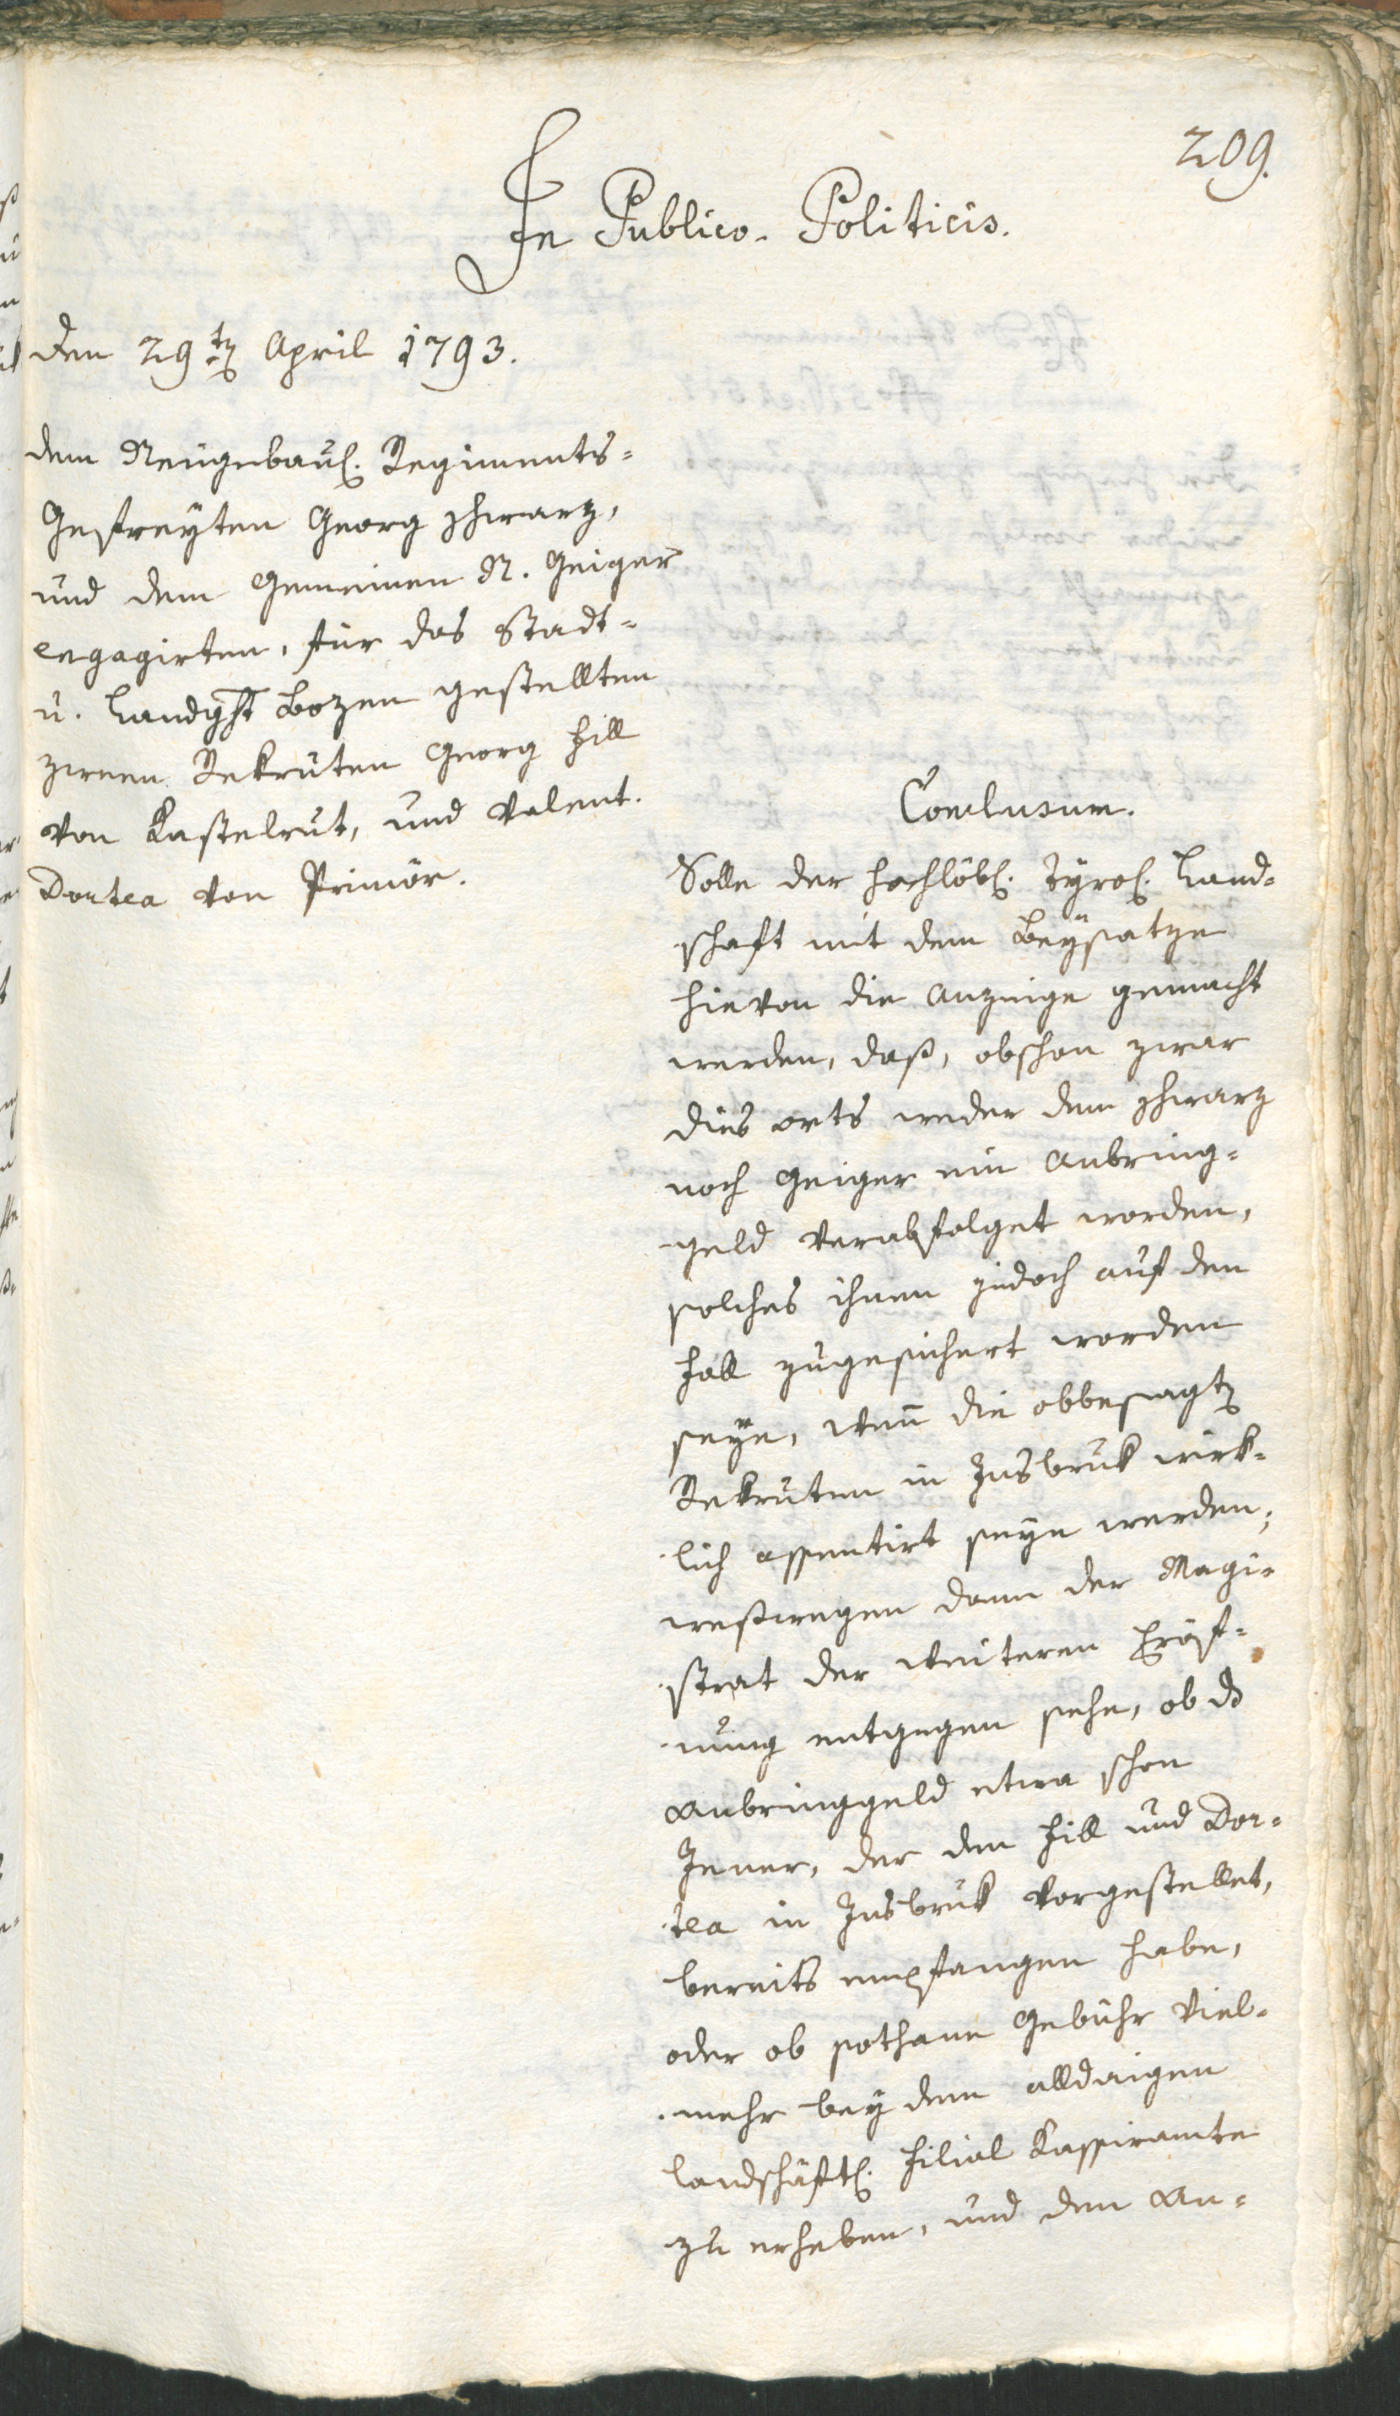 209.
In Publico-Politicis.
den 29ten April 1793.
dem Neugebaul. Regiments-
Gefreyten Georg Schwarz,
und dem Gemeinen N. Geiger
engagirten, für das Stadt-
u. Landght Bozen gestellten
zween Rekruten Georg Fill
von Kastelrut, und Valent.
Dortea von Primör.
Conclusum.
Solle der hochlöbl. Tyrol. Land-
schaft mit dem Beysatze
hievon die Anzeige gemacht
werden, daß, obschon zwar
dies orts weder dem Schwarz
noch Geiger ein Anbring-
geld verabfolget worden,
solches ihnen jedoch auf den
Fall zugesichert worden
seye, wenn die obbesagten
Rekruten in Insbruk wirk-
lich assentirt seyn werden;
weßwegen dann der Magi-
strat der weiteren Eröf-
nung entgegen sehe, ob das
Anbringgeld etwa schon
Jener, der den Fill und Dor-
tea in Insbruk vorgestellet,
bereits empfangen habe,
oder ob sothane Gebühr viel-
mehr bey dem alldaigen
landschäftl. Filial Kassieramte
zu erheben, und den An-